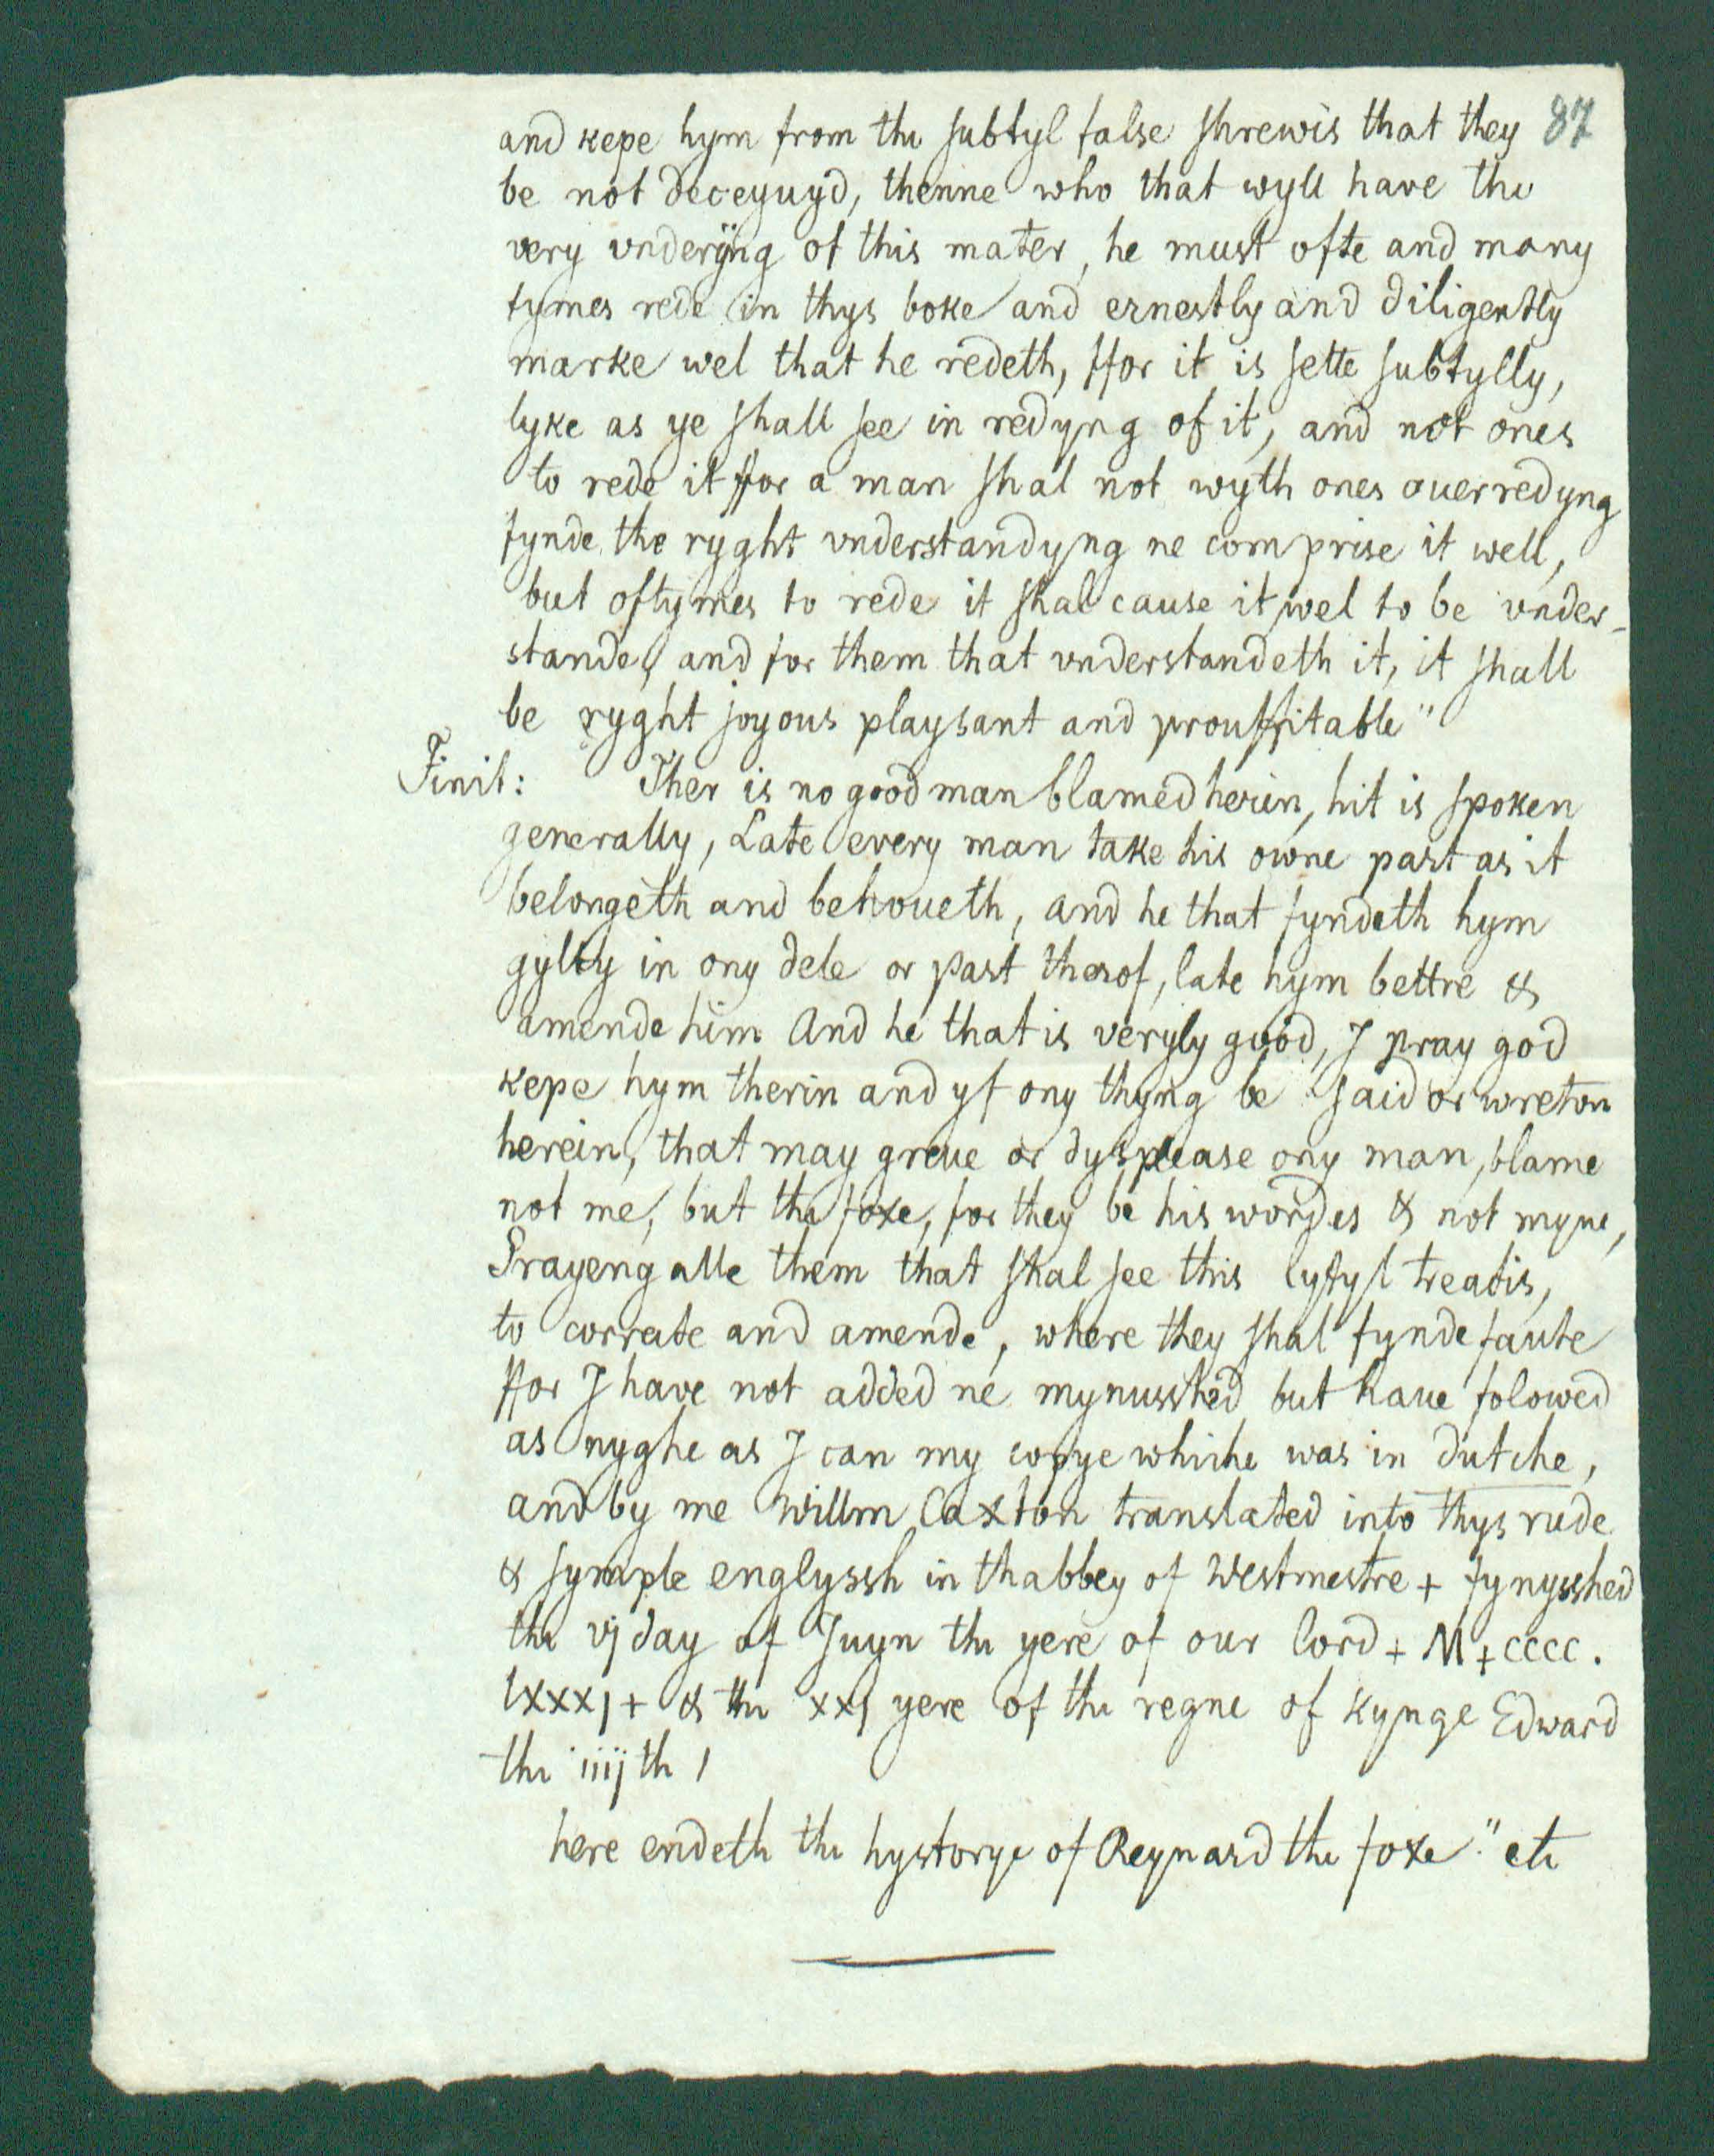 and kepe hym from the subtyl false shrewis that they 87
be not deceyuyd, thenne who that wyll have the
very vnderyng of this mater, he must ofte and many
tymes rede in thys boke and ernestly and diligently
marke wel that he redeth, ffor it is sette subtylly,
lyke as ye shall see in redyng of it, and not ones
to rede it ffor a man shal not wyth ones ouerredyng
fynde the ryght vnderstandyng ne comprise it well,
but oftymes to rede it shal cause it wel to be vnder-
stande, and for them that vnderstandeth it, it shall
be ryght joyous playsant and prouffitable"
Finit: Ther is no good man blamed herin, hit is spoken
generally, Late every man take his owne part as it
belongeth and behoueth, and he that fyndeth hym
gylty in ony dele or part therof, late hym bettre &
amende him And he that is veryly good, I pray god
kepe hym therin and yf ony thyng be said or wreton
herein, that may greue or dysplease ony man, blame
not me, but the foxe, for they be his wordes & not myne,
Prayeng alle them that shal see this lytyl treatis,
to correcte and amende, where they shal fynde faute
ffor I have not added ne mynusshed but haue folowed
as nyghe as I can my copye whiche was in dutche,
and by me Willm Caxton translated into thys rude
& symple englyssh in thabbey of Westmestre + fynysshed
the vj day of Juyn the yere of our lord + M + cccc.
lxxxj + & the xxj yere of the regne of kynge Edward
the iiijth /
here endeth the hystorye of Reynard the foxe" etc